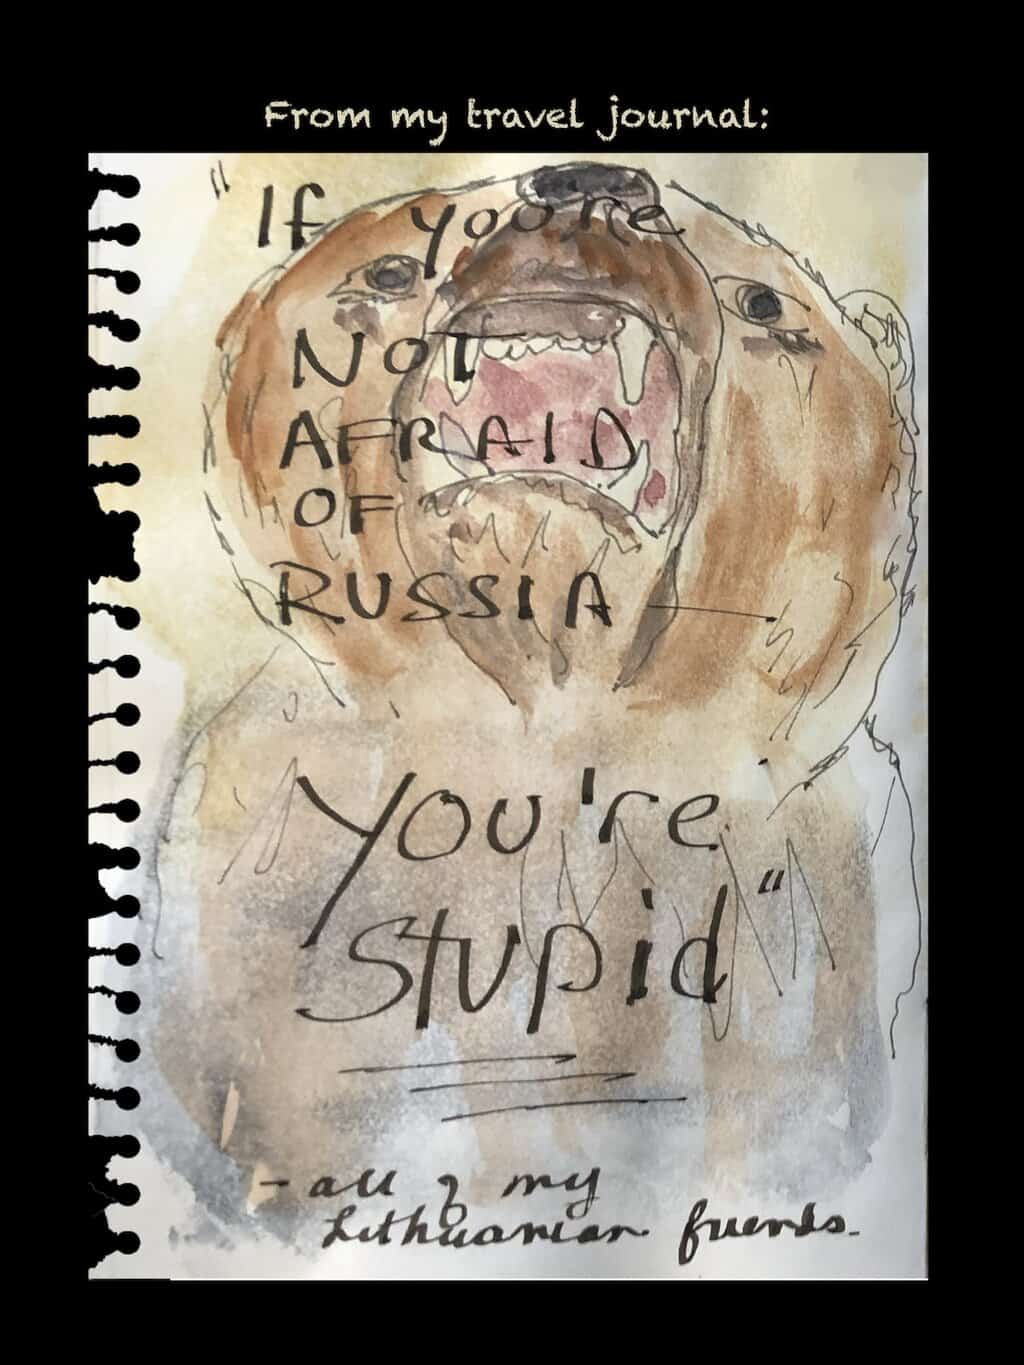 From my travel journal:
"If you're
NOT
AFRAID
OF
RUSSIA —
You're
stupid"
- all of my
Lithuanian friends.